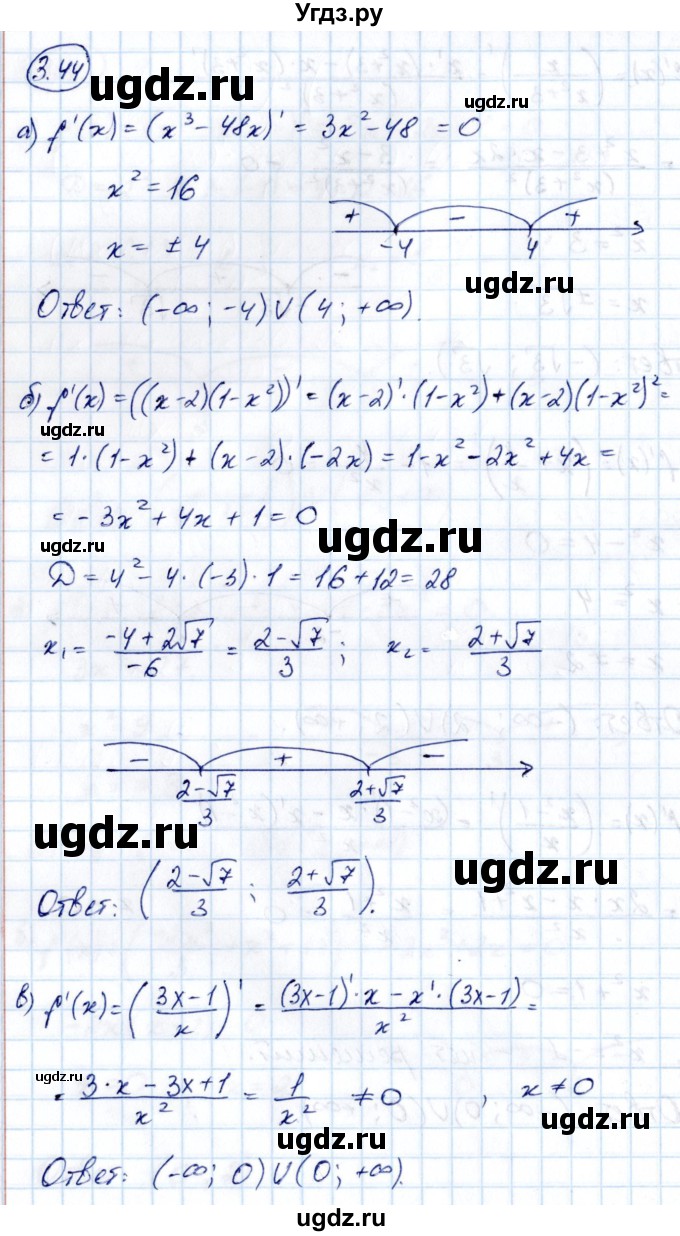 Угдз.ру
3.44
ugdz.ru
ugdz.ru
а) f'(x) = (x³ - 48x)' = 3x² - 48 = 0
x² = 16
+ - +
x = ± 4
-4 4
ugdz.ru
Ответ: (-∞; -4) ∪ (4; +∞).
ugdz.ru
б) f'(x) = ((x-2)(1-x²))' = (x-2)'·(1-x²) + (x-2)(1-x²)² =
= 1·(1-x²) + (x-2)·(-2x) = 1-x² - 2x² + 4x =
= -3x² + 4x + 1 = 0
ugdz.ru
D = 4² - 4·(-3)·1 = 16 + 12 = 28
x₁ = (-4 + 2√7)/(-6) = (2-√7)/3; x₂ = (2+√7)/3
- + -
(2-√7)/3 (2+√7)/3
ugdz.ru
ugdz.ru
Ответ: ((2-√7)/3; (2+√7)/3).
в) f'(x) = ((3x-1)/x)' = ((3x-1)'·x - x'·(3x-1))/x² =
ugdz.ru
= (3·x - 3x + 1)/x² = 1/x² ≠ 0, x ≠ 0
ugdz.ru
ugdz.ru
Ответ: (-∞; 0) ∪ (0; +∞).
ugdz.ru